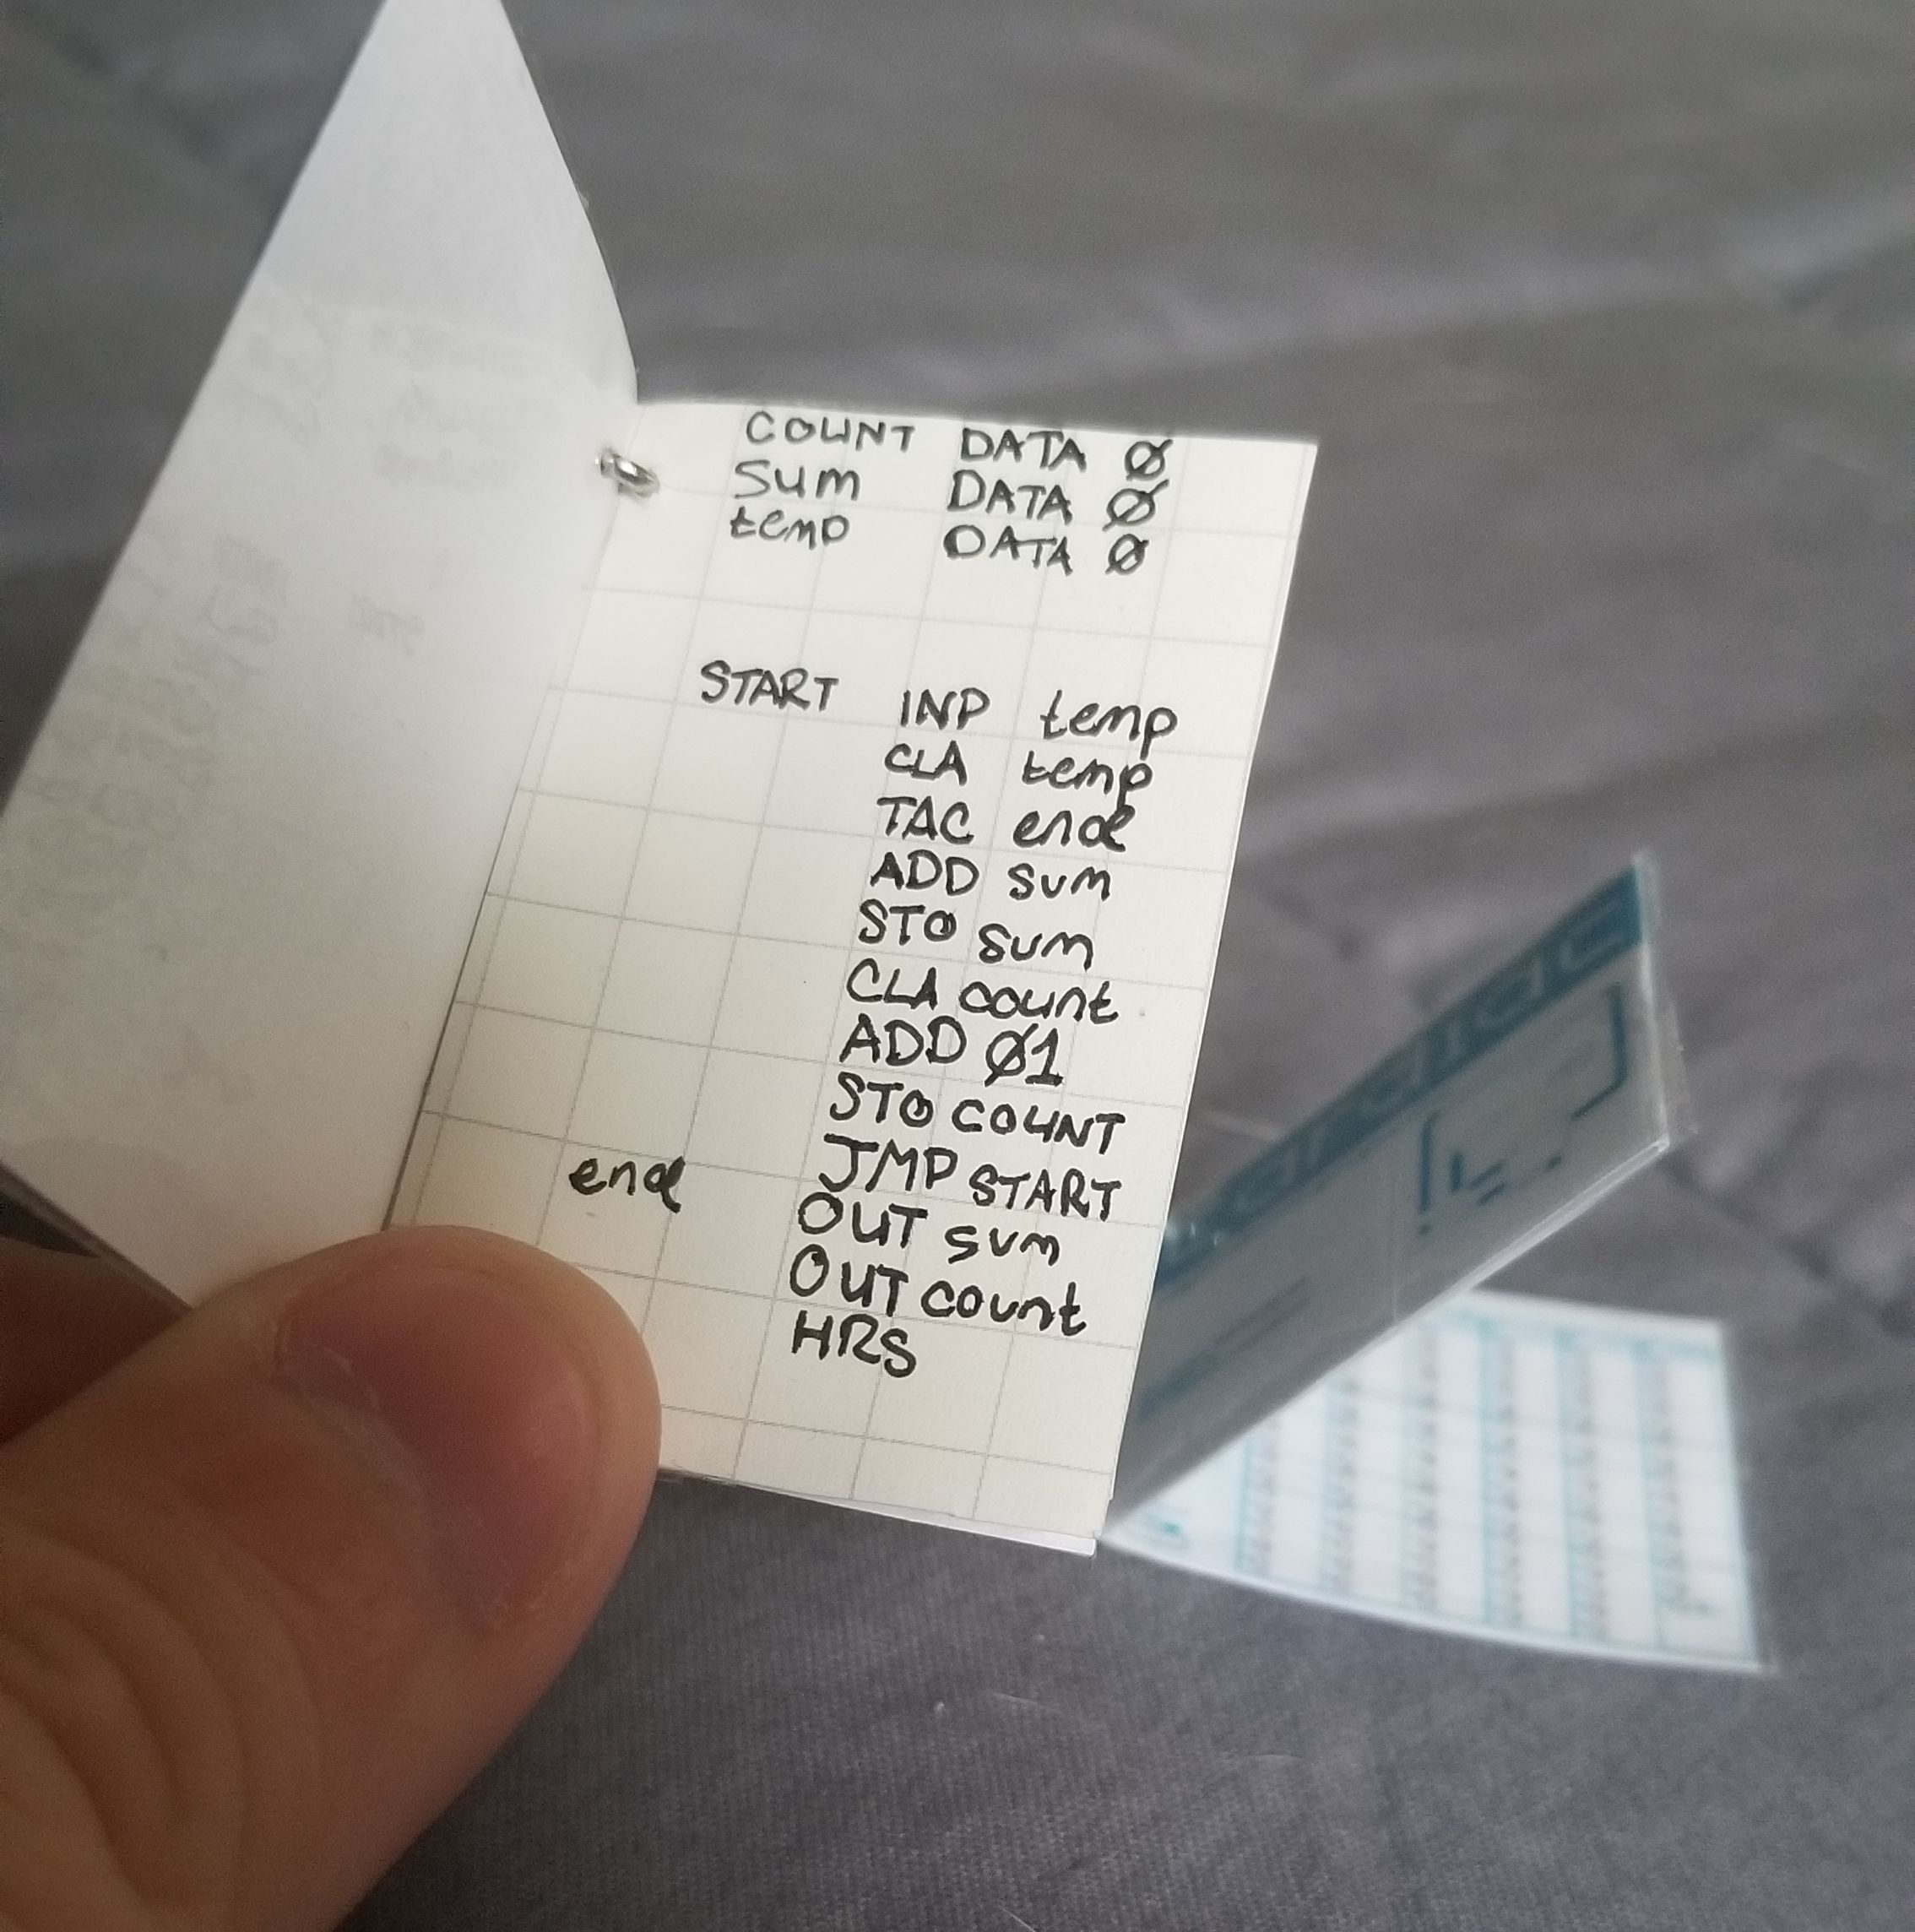 COUNT DATA Ø
Sum DATA Ø
temp DATA Ø
START INP temp
CLA temp
TAC end
ADD sum
STO sum
CLA count
ADD Ø1
STO COUNT
JMP START
end OUT sum
OUT count
HRS